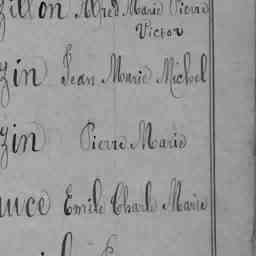 zillon Alfred Marie Pierre
Victor
zin Jean Marie Michel
zin Pierre Marie
uce Emile Charle Marie